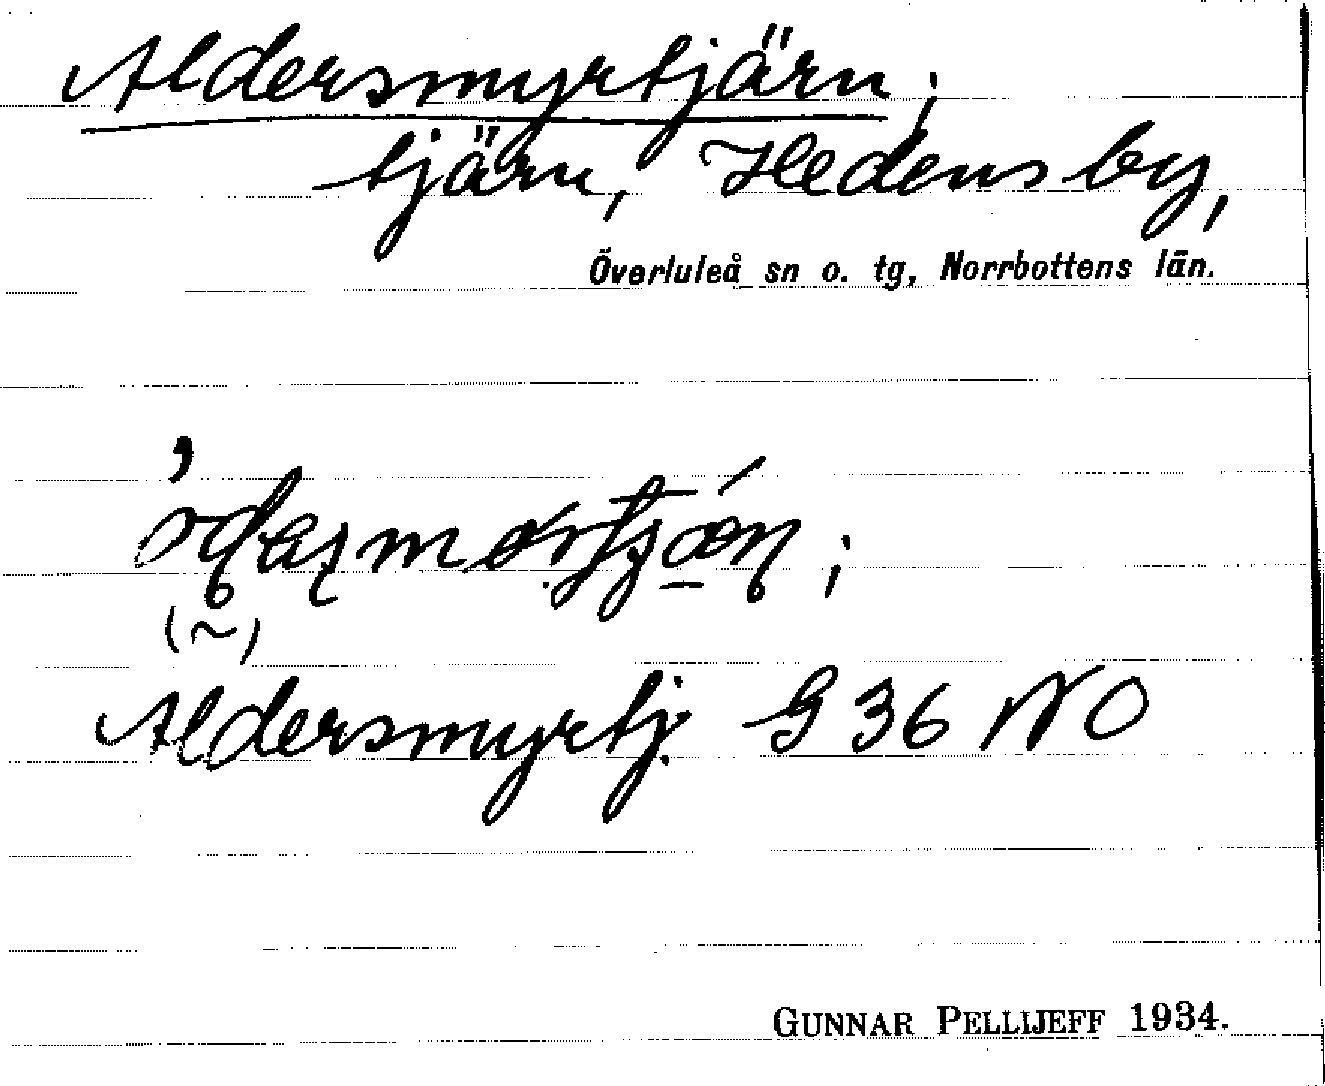 Aldersmyrtjärn;
tjärn, Hedensby,
Överluleå sn o. tg, Norrbottens län.
(~)
Aldersmyrtj. G 36 NO
GUNNAR PELLIJEFF 1934.